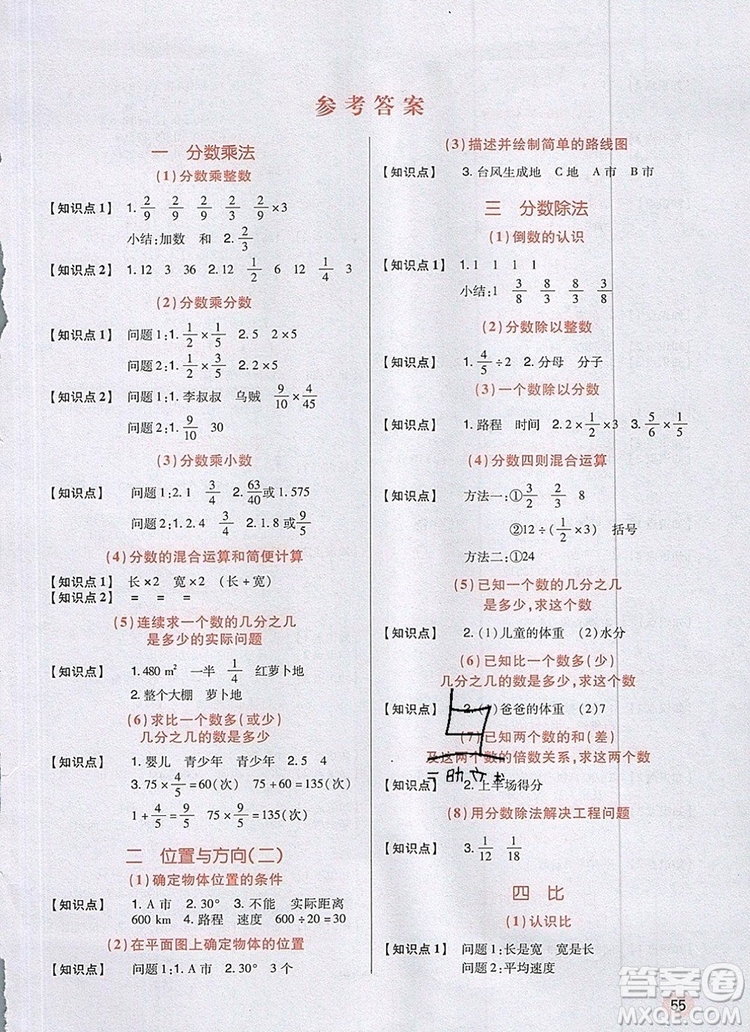 参考答案
一 分数乘法
(1)分数乘整数
【知识点1】 1. 2/9 2/9 2/9 2/9 2/9×3
小结:加数 和 2. 2/3
【知识点2】 1.12 3 36 2.12 1/2 6 12 1/4 3
(2)分数乘分数
【知识点1】 问题1:1. 1/2×1/5 2.5 2×5
问题2:1. 1/2×3/5
【知识点2】 问题1:1.李叔叔 乌贼 9/10×4/45
问题2:1. 9/10 30
(3)分数乘小数
【知识点】 问题1:2.1 3/4 2. 63/40或1.575
问题2:1.2.4 3/4 2.1.8或9/5
(4)分数的混合运算和简便计算
【知识点1】 长×2 宽×2 (长+宽)
【知识点2】 = = =
(5)连续求一个数的几分之几
是多少的实际问题
【知识点】 1.480 m² 一半 1/4 红萝卜地
2.整个大棚 萝卜地
(6)求比一个数多(或少)
几分之几的数是多少
【知识点】 1.婴儿 青少年 青少年 4/5
3.75×4/5=60(次) 75+60=135(次)
1+4/5=9/5 75×9/5=135(次)
二 位置与方向(二)
(1)确定物体位置的条件
【知识点】 1.A市 2.30° 3.不能 实际距离
600 km 4.路程 速度 600÷20=30
(2)在平面图上确定物体的位置
【知识点】 1.A市 2.30° 3个
(3)描述并绘制简单的路线图
【知识点】 3.台风生成地 C地 A市 B市
三 分数除法
(1)倒数的认识
【知识点1】 1.1 1 1 1
小结:1 3/8 8/3 8/3 3/8
(2)分数除以整数
【知识点】 1. 4/5÷2 2.分母 分子
(3)一个数除以分数
【知识点】 1.路程 时间 2.2×1/2×3 3. 5/6×1/5
(4)分数四则混合运算
【知识点】 方法一:①3/2 2/3 8
②12÷(1/2×3) 括号
方法二:①24
(5)已知一个数的几分之几
是多少,求这个数
【知识点】 2.(1)儿童的体重 (2)水分
(6)已知比一个数多(少)
几分之几的数是多少,求这个数
【知识点】 2.(1)爸爸的体重 (2)7
(7)已知两个数的和(差)
及这两个数的倍数关系,求这两个数
【知识点】 2.上半场得分
(8)用分数除法解决工程问题
【知识点】 3. 1/12 1/18
四 比
(1)认识比
【知识点1】 问题1:长是宽 宽是长
问题2:平均速度
55
答案圈
MXQE.COM